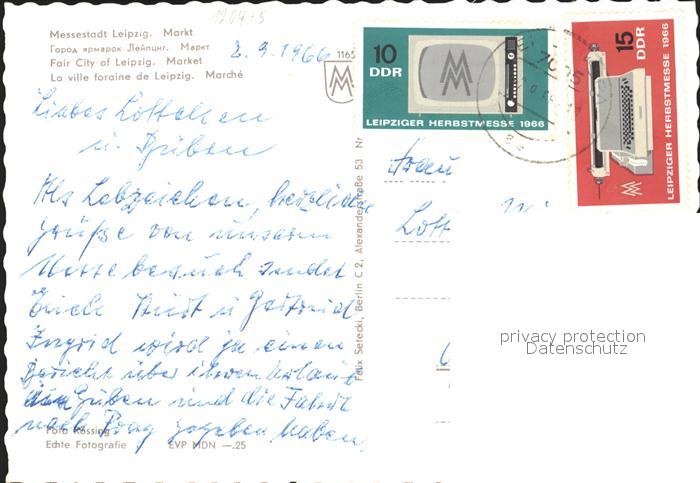 1204-5
Messestadt Leipzig. Markt
Город ярмарок Лейпциг. Маркт
Fair City of Leipzig. Market
La ville foraine de Leipzig. Marché
2.9.1966
1165
10
DDR
LEIPZIGER HERBSTMESSE 1966
15
DDR
LEIPZIGER HERBSTMESSE 1966
Liebes Lottchen
u. Guben
Als Lebzeichen, herzliche
Grüße von unserm
Messebesuch sendet
Erich u. Gertrud
Ingrid wird ja einen
Bericht über ihren Urlaub
Guben und die Fahrt
nach Prag gegeben haben.
Foto Rössing
Echte Fotografie EVP MDN —.25
Felix Setecki, Berlin C 2, Alexanderstraße 53 Nr
Frau
Lott
privacy protection
Datenschutz